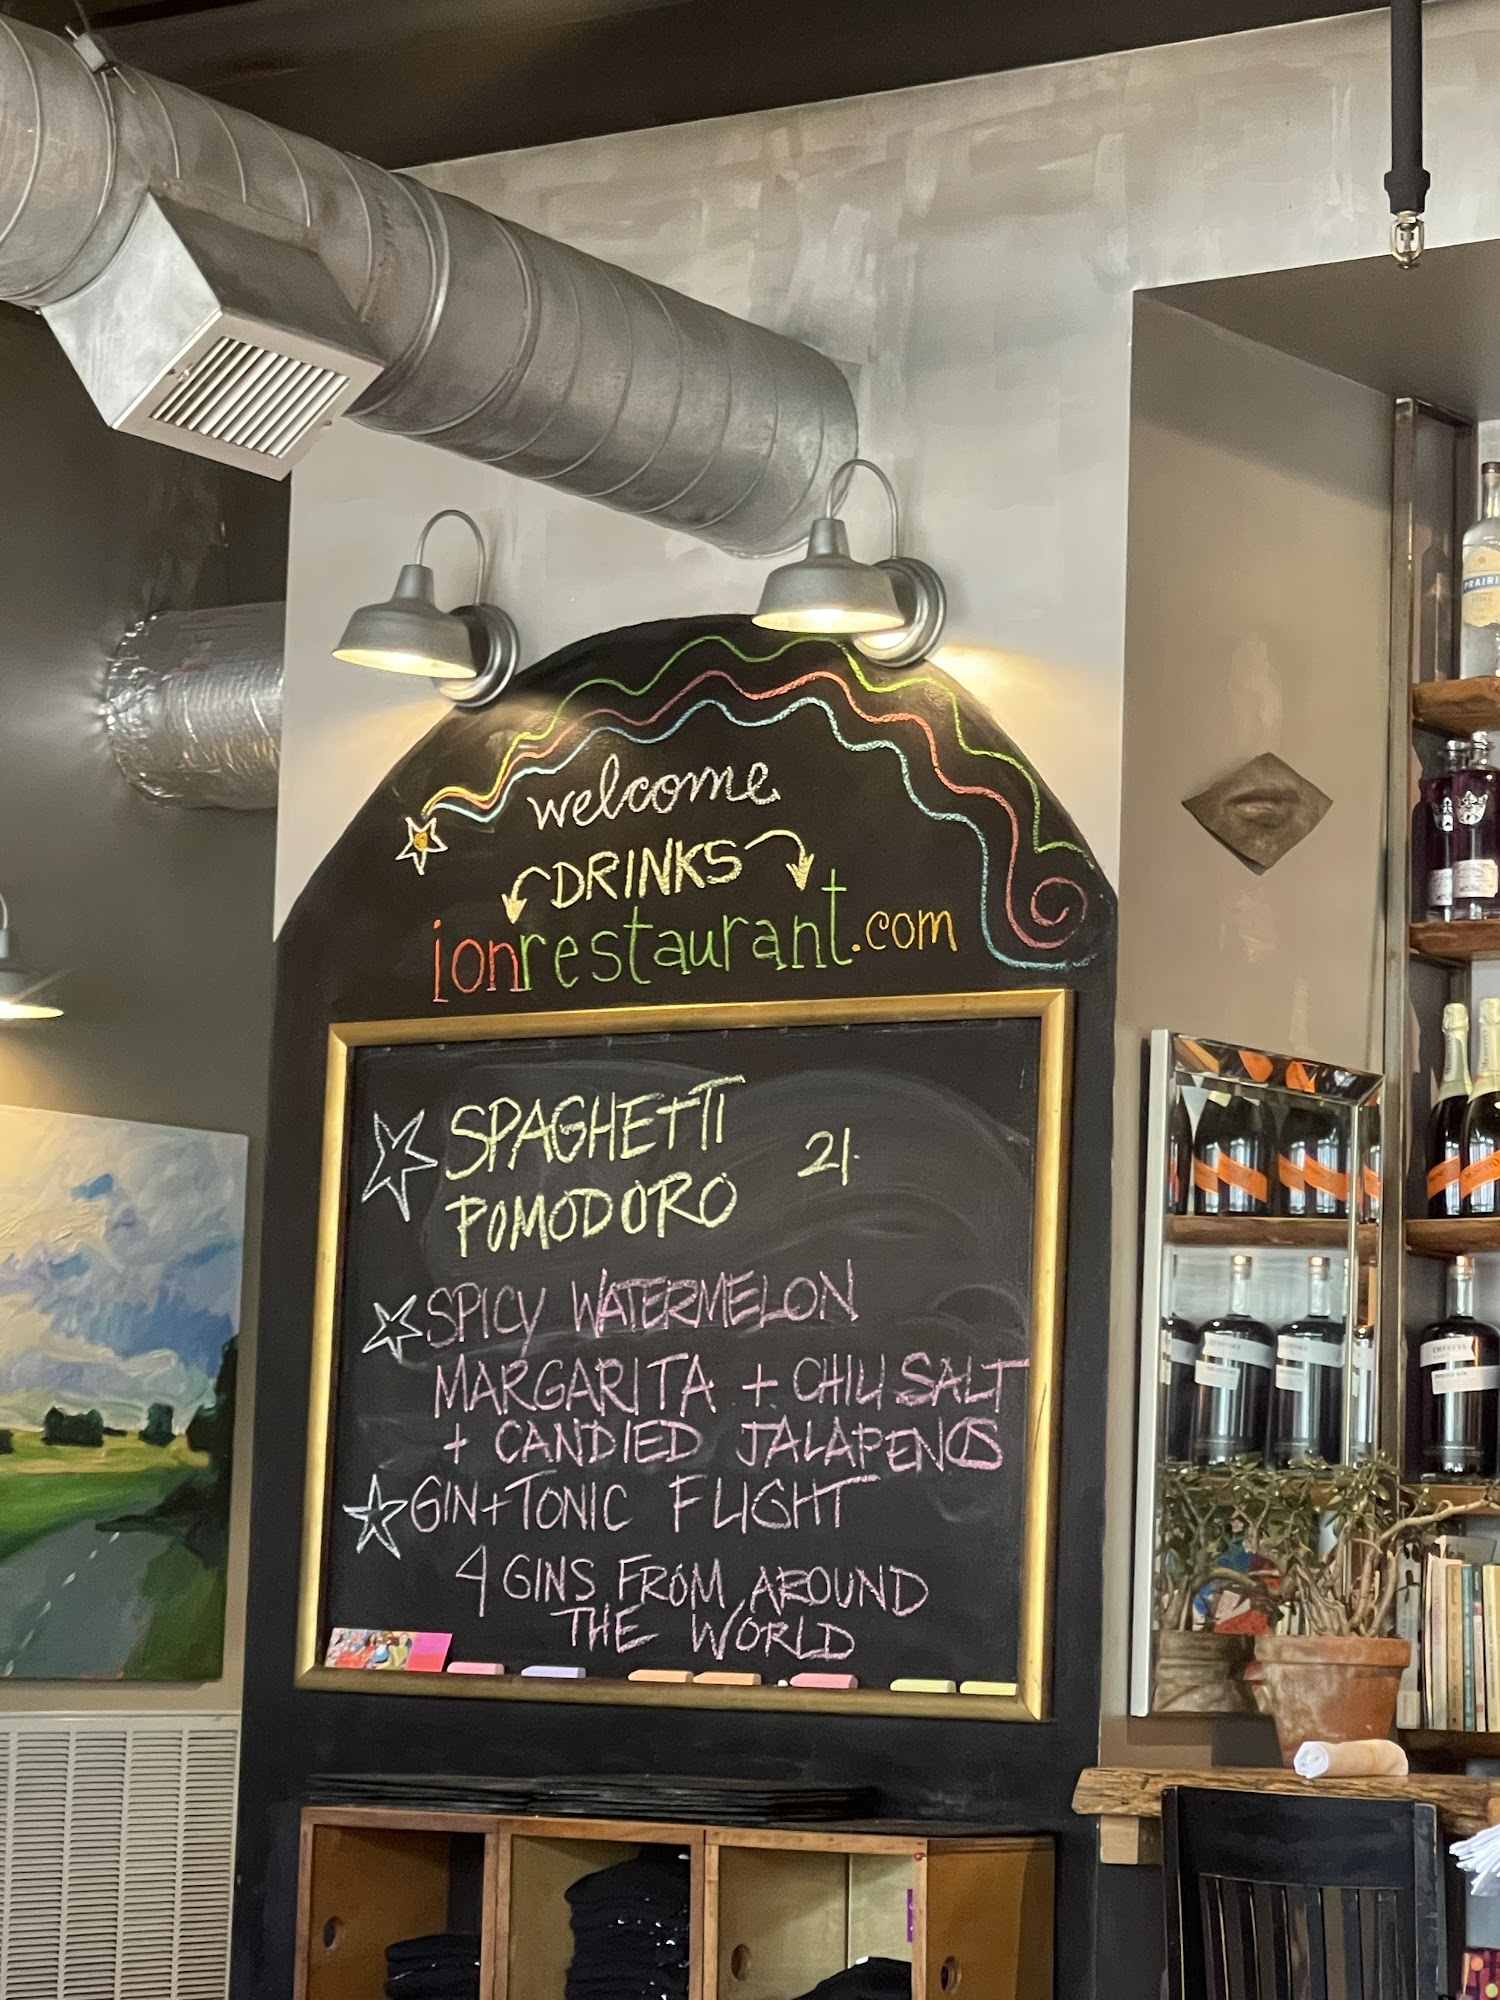 welcome
DRINKS
ionrestaurant.com
SPAGHETTI 21.
POMODORO
SPICY WATERMELON
MARGARITA + CHILI SALT
+ CANDIED JALAPENOS
GIN+TONIC FLIGHT
4 GINS FROM AROUND
THE WORLD
PRAIRI
EMPRESS